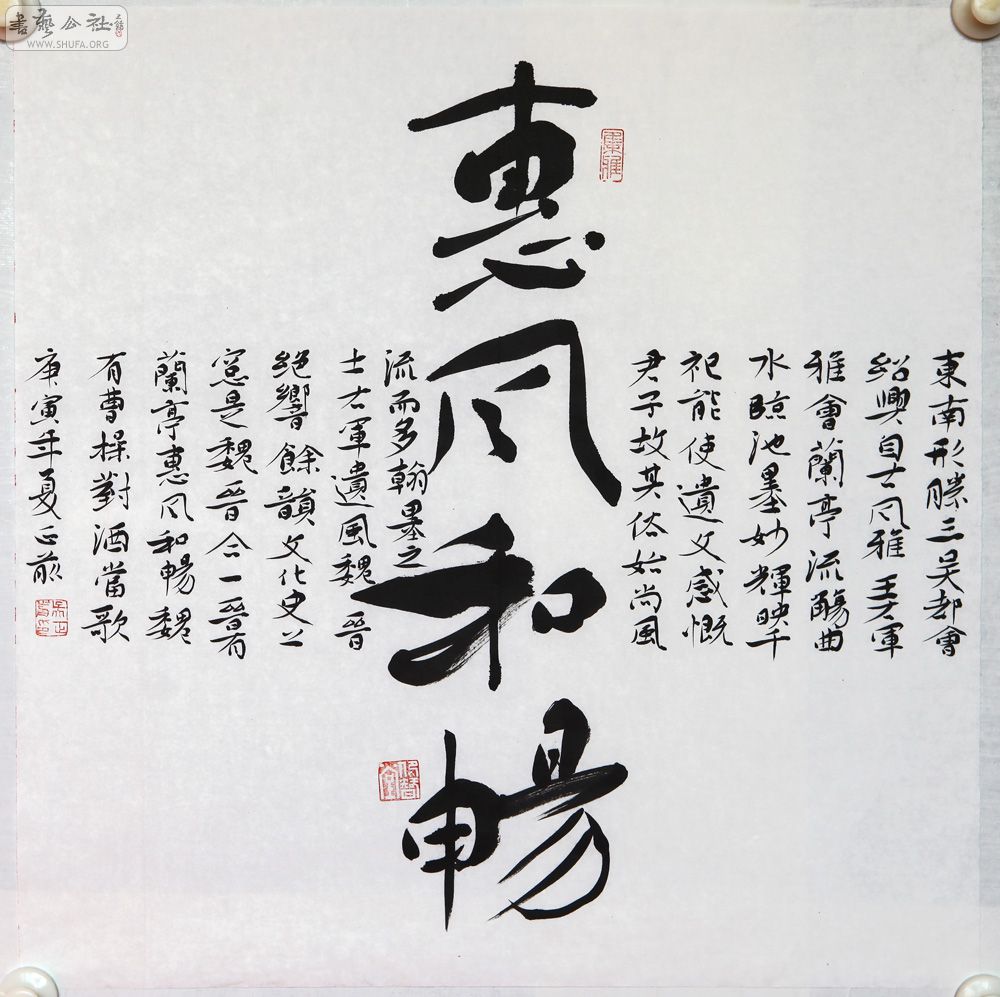 惠风和暢
東南形勝三吴都會
紹興自古风雅王右軍
雅會蘭亭流觴曲
水臨池墨妙輝映千
祀能使遺文感慨
君子故其俗始尚風
流而多翰墨之
士右軍遺風魏晉
絕響餘韻文化史上
窓是魏晉合一晉有
蘭亭惠风和暢魏
有曹操對酒當歌
庚寅年夏正前
書藝公社
WWW.SHUFA.ORG